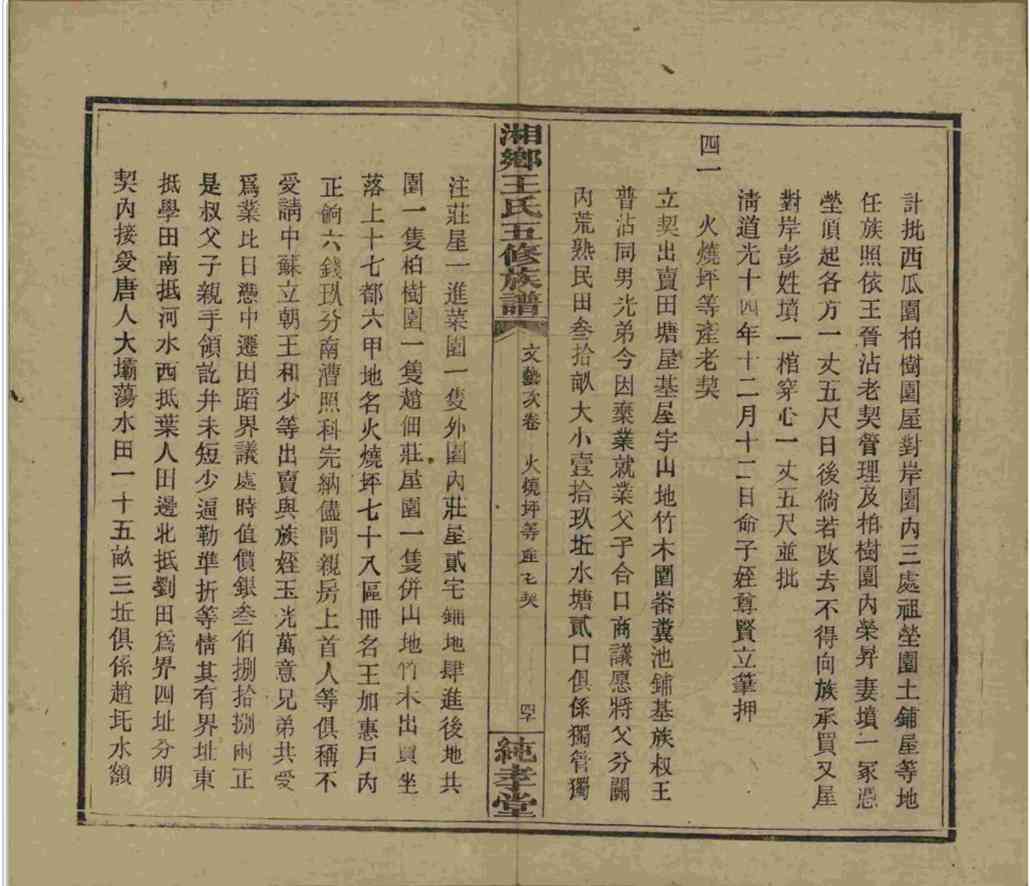 計批西瓜園柏樹園屋對岸園內三處祖塋園土鋪屋等地
任族照依王晉沾老契管理及柏樹園內榮昇妻墳一冢憑
塋頂起各方一丈五尺日後倘若改去不得向族承買又屋
對岸彭姓墳一棺穿心一丈五尺並批
淸道光十四年十二月十二日命子姪尊賢立筆押
四一 火燒坪等產老契
立契出賣田塘屋基屋宇山地竹木園嵛糞池鋪基族叔王
普沾同男光弟今因棄業就業父子合口商議愿將父分關
內荒熟民田叁拾畝大小壹拾玖坵水塘貳口俱係獨管獨
湘鄉王氏五修族譜 文藝次卷 火燒坪等產老契 純孝堂
注莊屋一進菜園一隻外園內莊屋貳宅鋪地肆進後地共
園一隻柏樹園一隻趙佃莊屋園一隻併山地竹木出賣坐
落上十七都六甲地名火燒坪七十八區冊名王加惠戶內
正餉六錢玖分南漕照科完納儘問親房上首人等俱稱不
受請中蘇立朝王和少等出賣與族姪玉光萬意兄弟共受
爲業比日憑中遷田蹈界議處時值價銀叁伯捌拾捌兩正
是叔父子親手領訖幷未短少逼勒準折等情其有界址東
抵學田南抵河水西抵葉人田邊北抵劉田爲界四址分明
契內接受唐人大壩蕩水田一十五畝三坵俱係趙圫水額